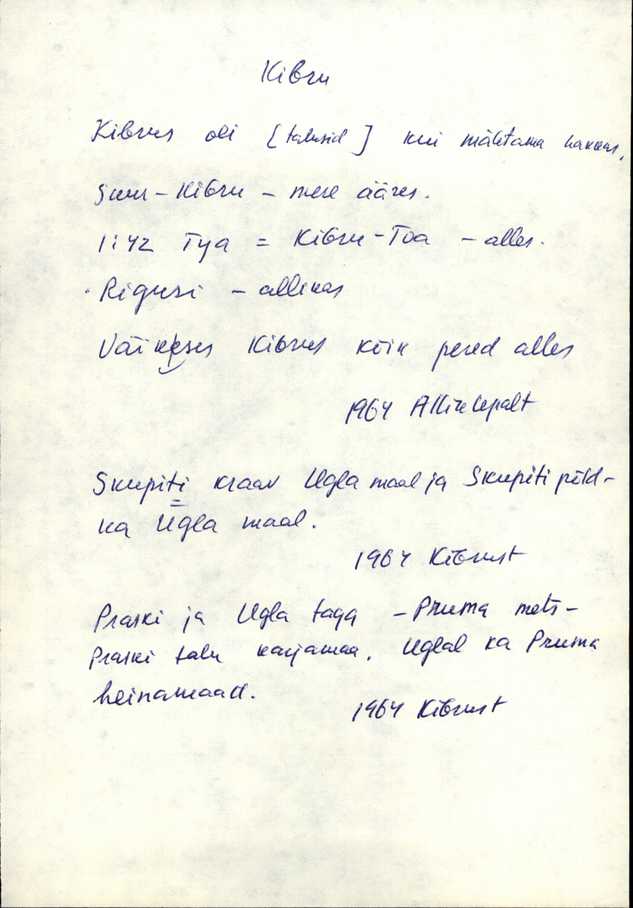 Kibru
Kibrus oli [talusid] kui mäletama hakkas,
Suur-Kibru - mere ääres.
1:42 Tya = Kibru-Toa - alles.
Riguri - allikas
Väikeses Kibrus kõik pered alles
1964
Skupiti kraav Ugla maal ja Skupiti põld-
ka Ugla maal.
1964 Kibrust
Praski ja Ugla taga - Pruma mets-
Praski talu karjamaa. Uglal ka Pruma
heinamaad.
1964 Kibrust